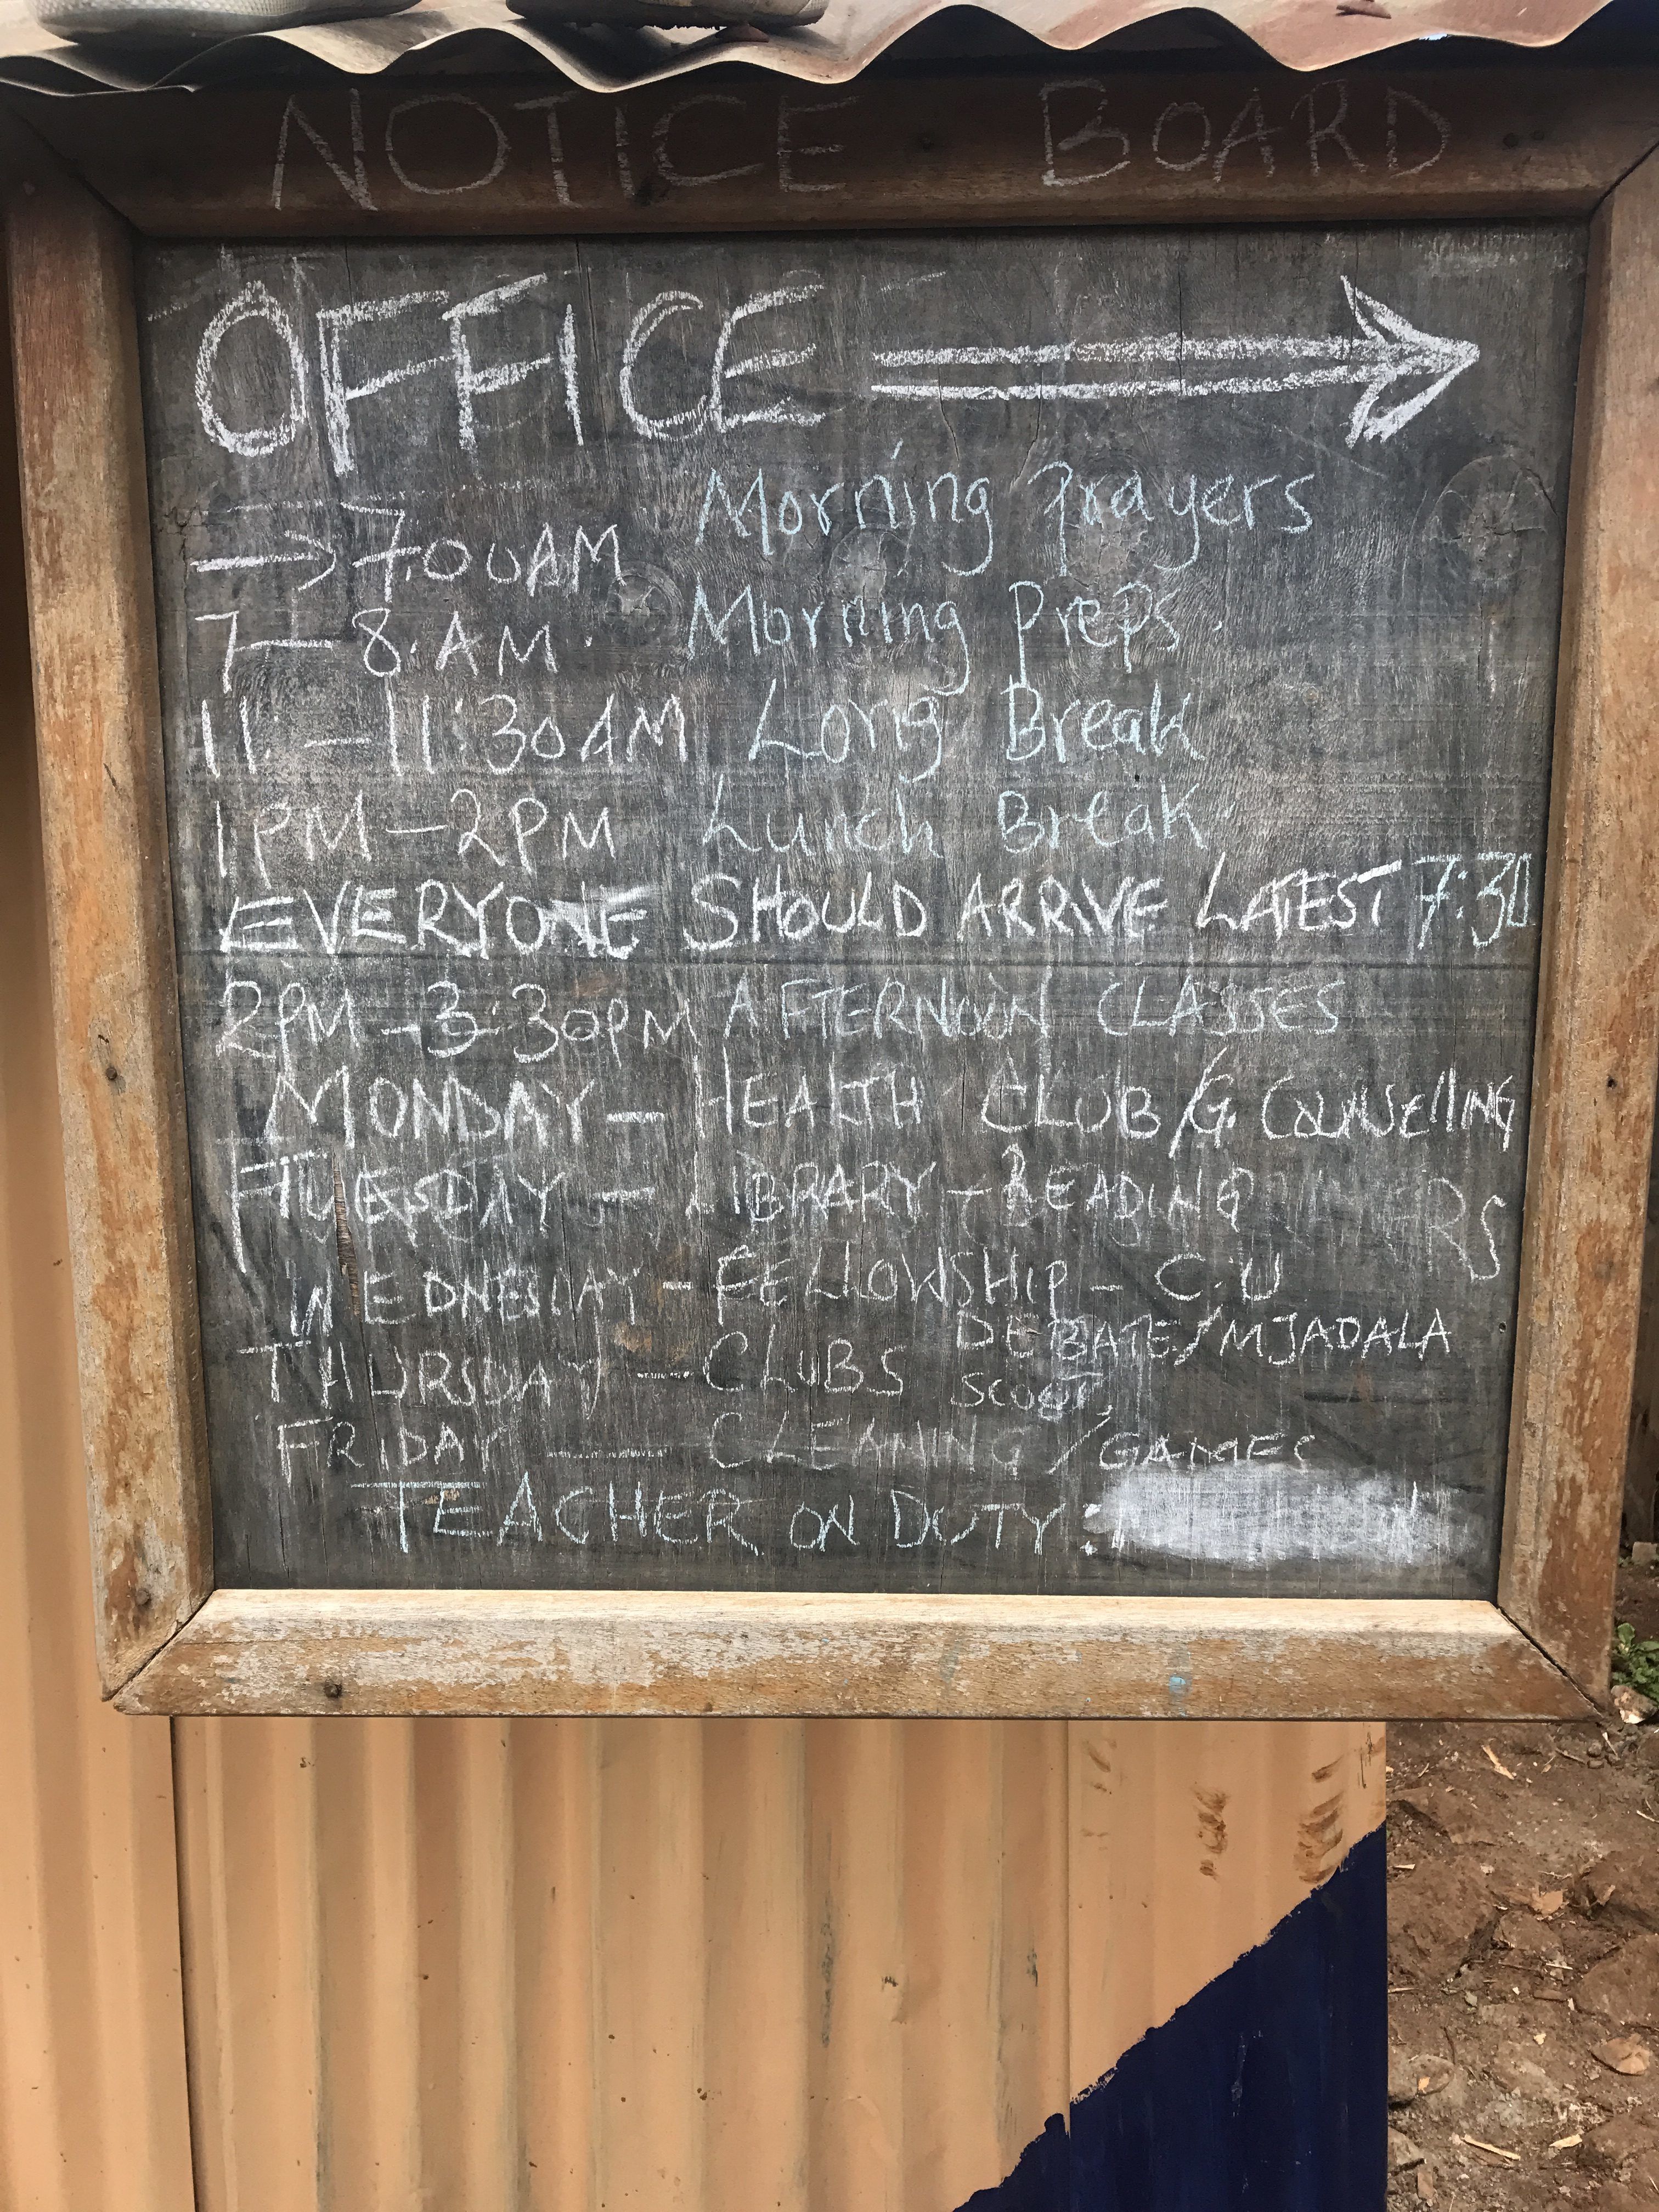 NOTICE BOARD
OFFICE
→ 7.00AM Morning Prayers
7–8.AM. Morning Preps.
11–11:30AM Long Break
1PM–2PM Lunch Break
EVERYONE SHOULD ARRIVE LATEST 7:30
2PM–3:30PM AFTERNOON CLASSES
MONDAY – HEALTH CLUB/G. COUNSELLING
TUESDAY – LIBRARY – READING
WEDNESDAY – FELLOWSHIP – C.U
THURSDAY – CLUBS DEBATE/MJADALA
SCOUT,
FRIDAY – CLEANING/GAMES
TEACHER ON DUTY: